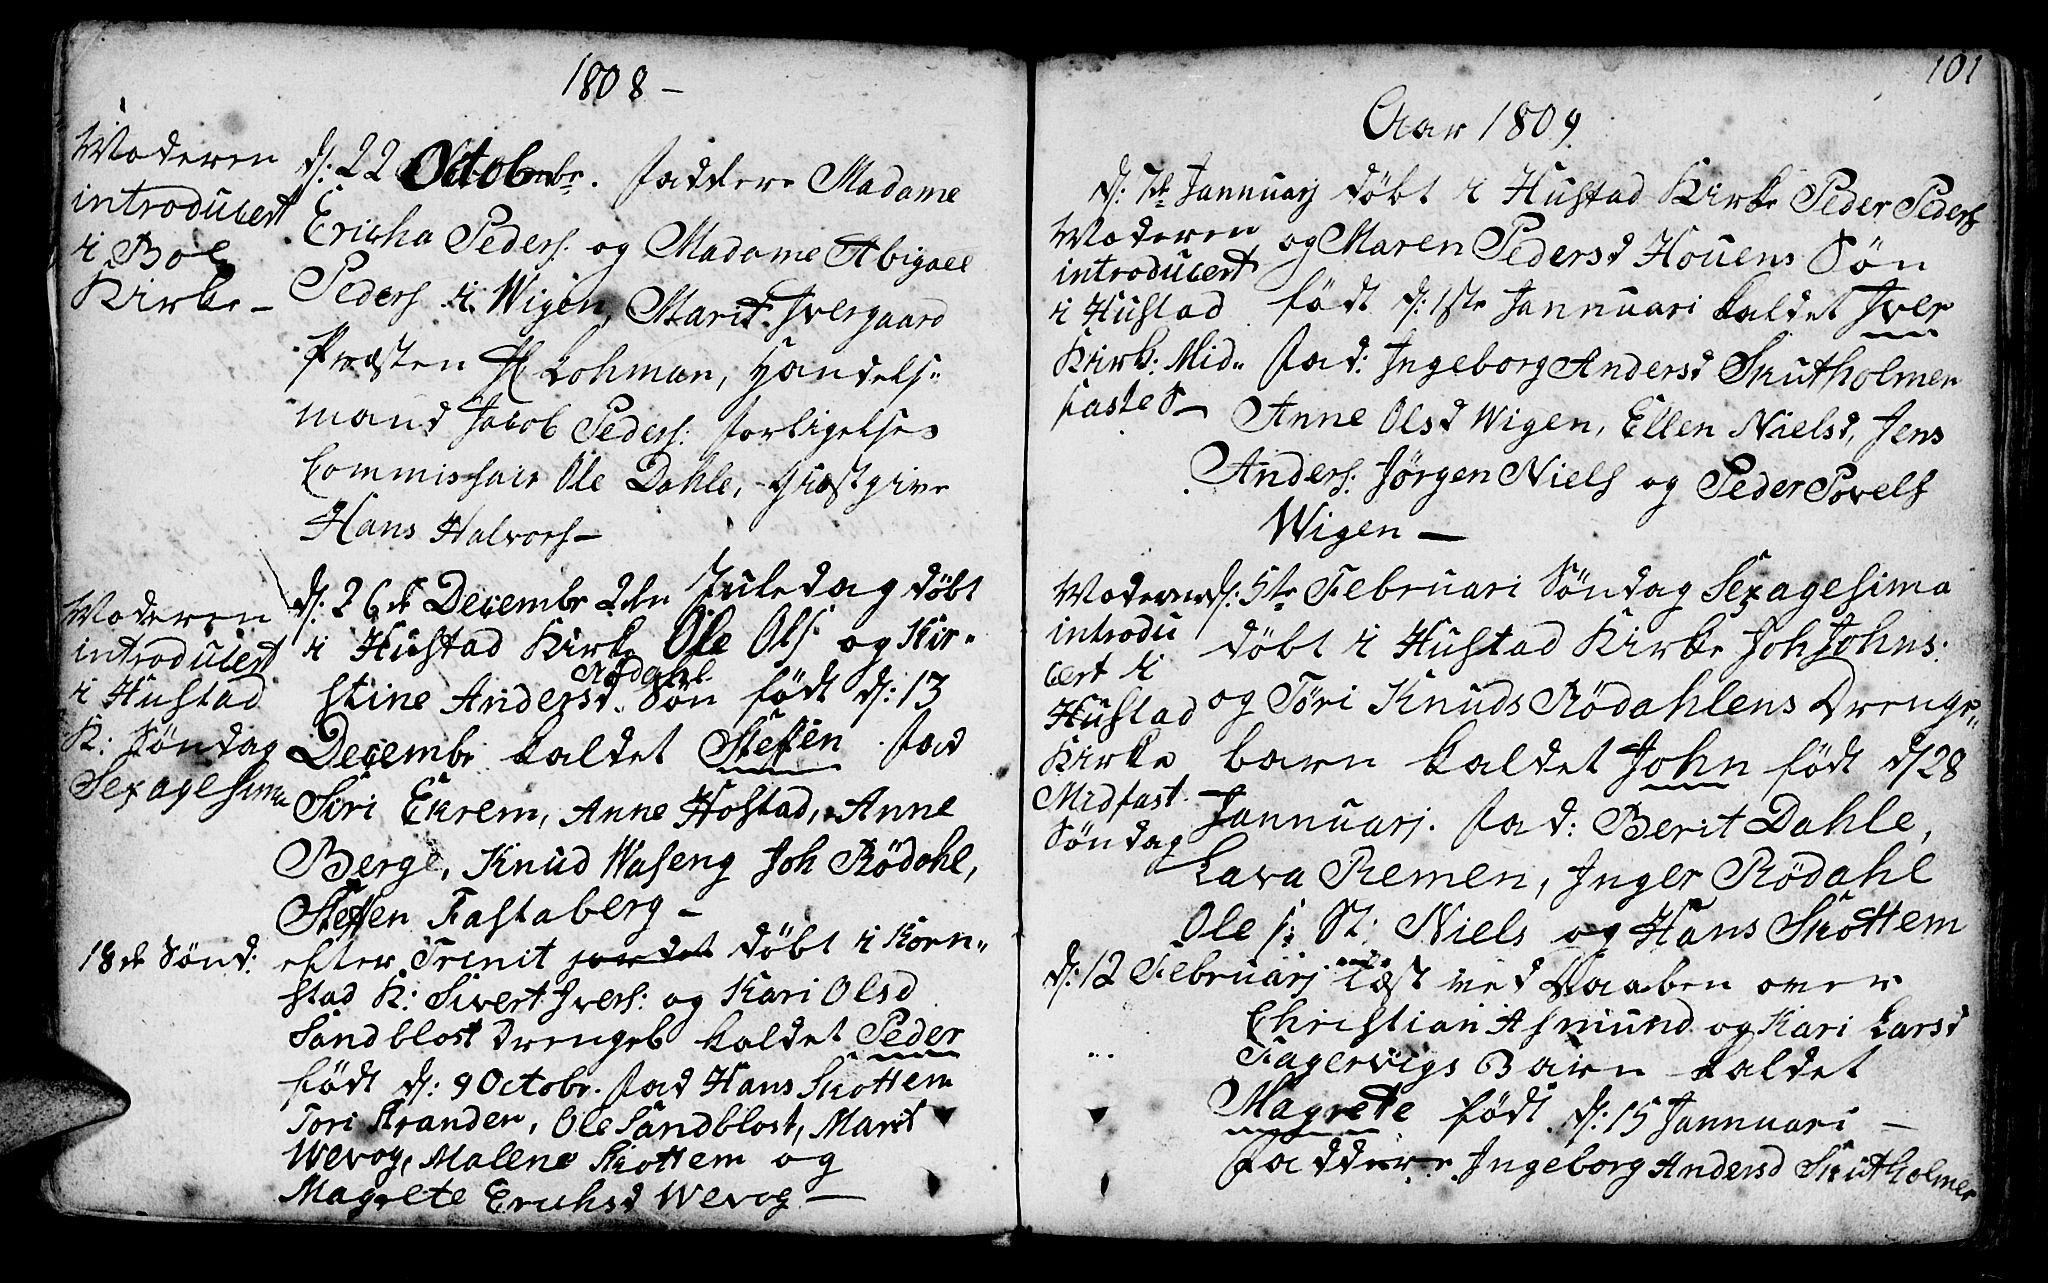 1808 –
Moderen
introducert
i Bol
Kirke –
d: 22 Octobr. Faddere Madame
Ericha Peders. og Madame Abigael
Peders i Wigen, Marit Ivergaard
Præsten H Lohman, Handels„
mand Jacob Peders: Forligelses
Commissair Ole Dahle, Giæstgive
Hans Halvors –
Moderen
introducert
i Hustad
K: Söndag
Sexagesima
d: 26de Decembr 2den Juledag döbt
i Hustad Kirke Ole Ols og Kir„
Rödahl
stine Andersd. Sön födt d: 13
Decembr kaldet Steffen. Fad
Siri Ekrem, Anne Hostad, Anne
Berge, Knud Waseng Joh Rödahl,
Steffen Fastaberg –
18de Sönd: efter Trinit döbt i Korn„
stad K: Siwert Ivers: og Kari Olsd
Sandblost Drengeb kaldet Peder
födt d: 9 Octobr. Fad Hans Skottem
Tori Strander, Ole Sandblost, Marit
Wevog, Malene Skottem og
Magrete Erichsd Wevog –
101
Aar 1809
d: 7de Jannuarj döbt i Hustad Kirke Peder Peders
Moderen
introducert
i Hustad
Kirk: Mid„
faste S –
og Maren Pedersd Houens Sön
födt d: 1ste Jannuari kaldet Iver
Fad: Ingeborg Andersd Skutholmen
Anne Olsd Wigen, Ellen Nielsd, Jens
Anders: Jörgen Niels og Peder Povels
Wigen –
Moderen
introdu
cert i
Hustad
Kirke
Midfast.
Söndag
d: 5te Februari Söndag Sexagesima
döbt i Hustad Kirke Joh Johns:
og Töri Knuds Rödahlens Drenge„
barn kaldet John födt d 28
Jannuarj. Fad: Berit Dahle,
Lava Remen, Inger Rödahl
Ole St: Niels og Hans Skottem
d: 12 Februarj læst ved Daaben over
Christian Asmund og Kari Larsd
Fagervigs Barn kaldet
Magrete födt d: 15 Jannuari –
Faddere Ingeborg Andersd Skutholmen